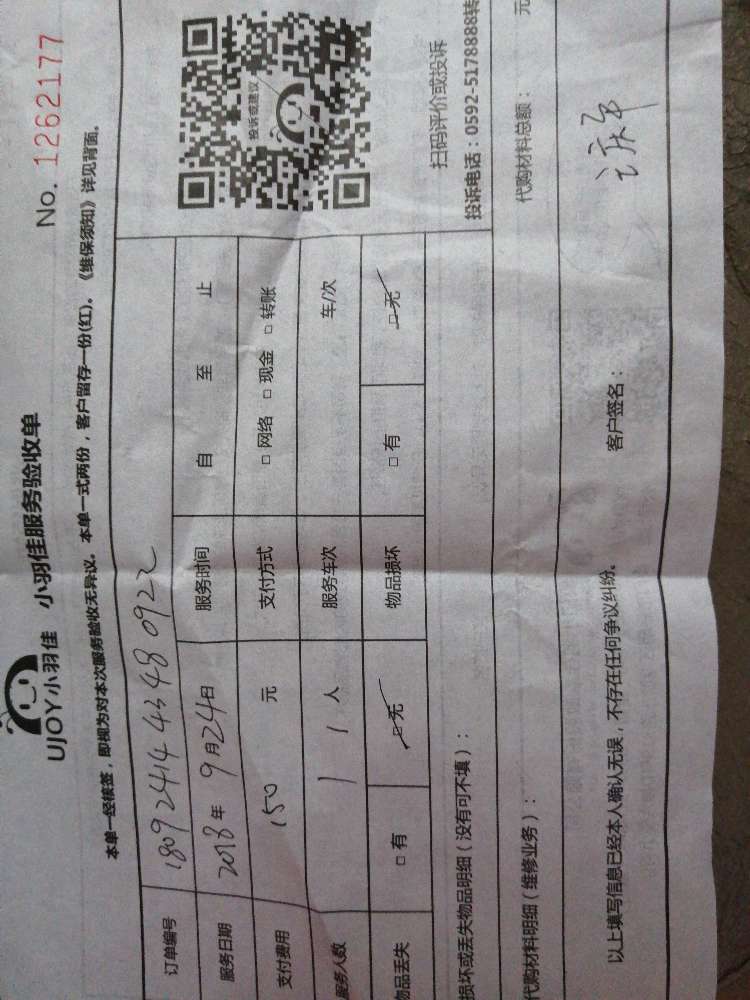 UJOY小羽佳 小羽佳服务验收单
No. 1262177
本单一经接签，即视为对本次服务验收无异议。本单一式两份，客户留存一份(红)。《维保须知》详见背面。
订单编号 1809241443480922
服务日期 2018年9月24日 服务时间 自 至 止
支付费用 150 元 支付方式 □网络 □现金 □转账
服务人数 1 人 服务车次 车/次
物品丢失 □有 □无 物品损坏 □有 □无
投诉或建议
扫码评价或投诉
投诉电话：0592-5178888转
损坏或丢失物品明细（没有可不填）：
代购材料明细（维修业务）： 代购材料总额： 元
以上填写信息已经本人确认无误，不存在任何争议纠纷。 客户签名：